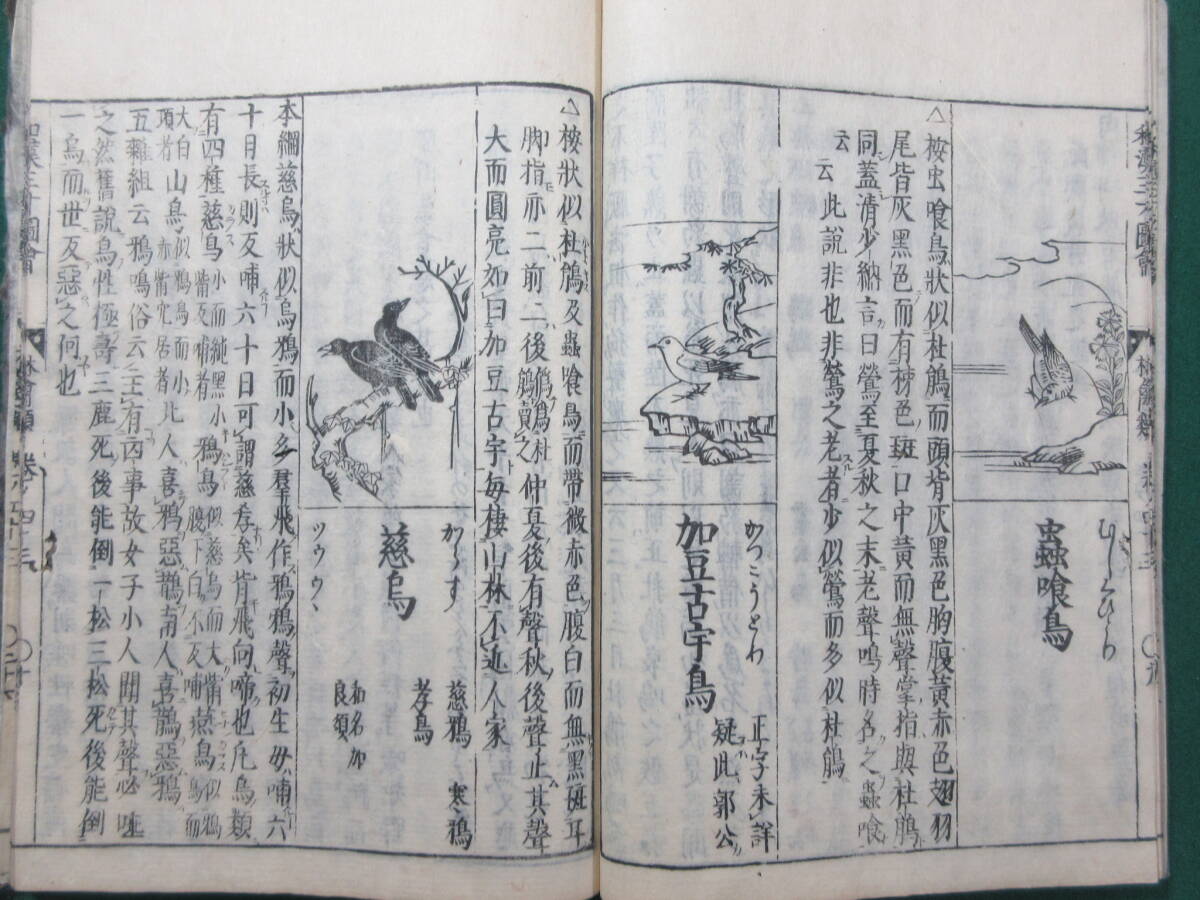 和漢三才圖會
林禽類
むしくひどり
蟲喰鳥
△按虫喰鳥狀似杜鵑而頭背灰黑色胸腹黃赤色翅羽
尾皆灰黑色而有柹色斑口中黃而無聲掌指與杜鵑
同蓋清少納言曰鶯至夏秋之末老聲鳴時名之蟲喰
云云此說非也非鶯之老者少似鶯而多似杜鵑
かつこうどり
加豆古宇鳥
正字未詳
疑此郭公
△按狀似杜鵑及蟲喰鳥而帶微赤色腹白而無黑斑耳
脚指亦二前二後杜鵑鸜之仲夏後有聲秋後聲止其聲
大而圓亮如曰加豆古宇每棲山林不近人家
からす
慈烏
ツウウヽ
慈鴉 寒鴉
孝鳥
和名加
良須
本綱慈烏狀似烏鴉而小多群飛作鴉鴉聲初生母哺六
十日長則反哺六十日可謂慈孝矣背飛向啼也凡烏類
有四種慈烏小而純黑小觜反哺者鴉烏似慈烏而大觜腹下白不反哺者燕烏似鴉烏而
大白項者山烏似鴉烏而小赤觜穴居者北人喜鴉惡鵲南人喜鵲惡鴉
五雜組云鴉鳴俗云主有凶事故女子小人聞其聲必唾
之然舊說烏性極壽三鹿死後能倒一松三松死後能倒
一烏而世反惡之何也
和漢三才圖會
林禽類 卷ノ四十三